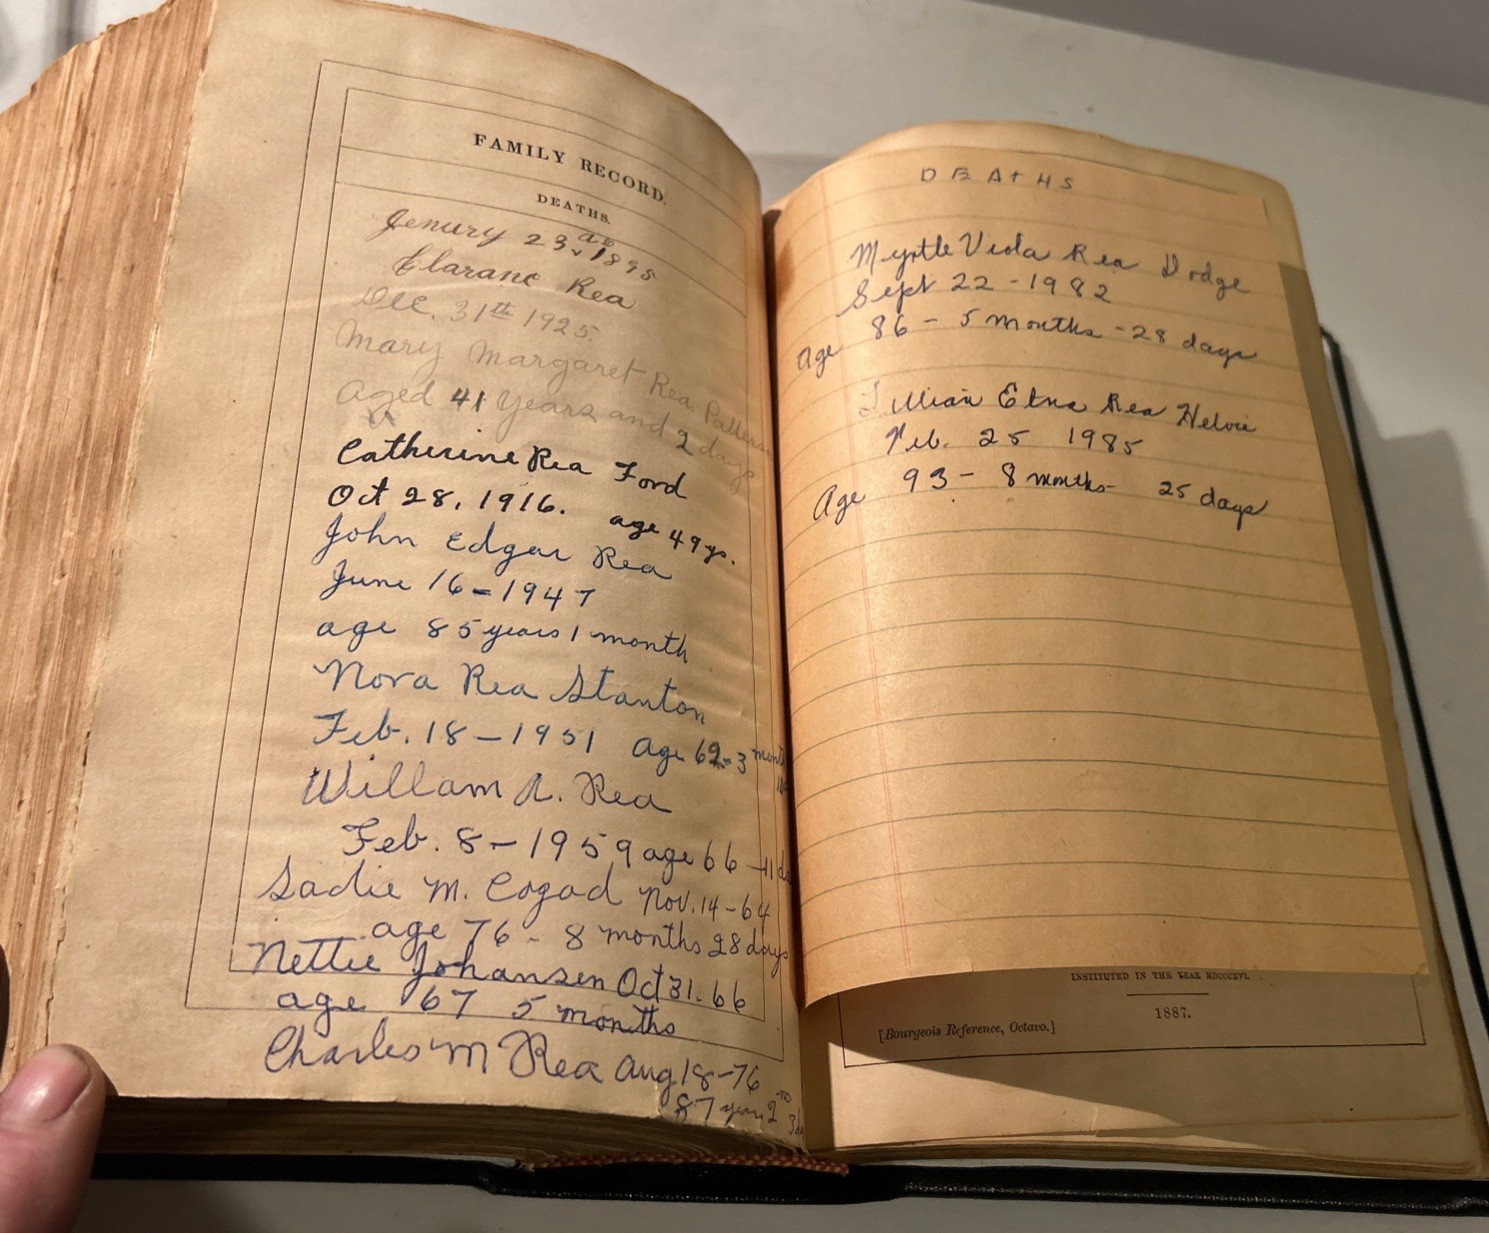 FAMILY RECORD.
DEATHS.
Jenury 23, 1895
Claranc Rea
Dec. 31th 1925.
Mary Margaret Rea Patterson
Aged 41 Years and 2 days
Catherine Rea Ford
Oct 28, 1916. age 49 yr.
John Edgar Rea
June 16-1947
age 85 years 1 month
Nora Rea Stanton
Feb. 18-1951 age 62-3 month
Willam A. Rea
Feb. 8-1959 age 66-11 da
Sadie M. Cogad Nov. 14-64
age 76-8 months 28 days
Nettie Johansen Oct 31. 66
age 67 5 months
Charles M Rea Aug 18-76
87 years 2 mo 3 da
DEATHS
Myrtle Viola Rea Dodge
Sept 22-1982
Age 86-5 months-28 days
Lillian Etna Rea Helvie
Feb. 25 1985
Age 93-8 months-25 days
INSTITUTED IN THE YEAR MDCCCXVI.
1887.
[Bourgeois Reference, Octavo.]